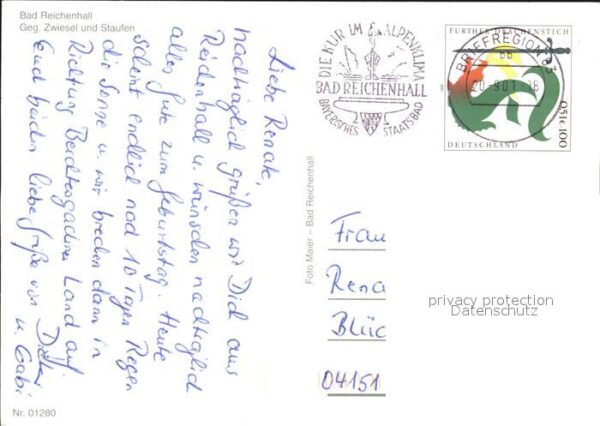 Bad Reichenhall
Geg. Zwiesel und Staufen
DIE KUR IM ALPENKLIMA
BAD REICHENHALL
BAYERISCHES STAATSBAD
BRIEFREGION 83
bb
20.-9.01-18
FURTHER DRACHENSTICH
DEUTSCHLAND
0,51€ 100
Liebe Renate,
nachträglich grüßen wir Dich aus
Reichenhall u. wünschen nachträglich
alles Gute zum Geburtstag. Heute
scheint endlich nach 10 Tagen Regen
die Sonne u. wir brechen dann in
Richtung Berchtesgadener Land auf
Euch beiden liebe Grüße von Dieter
u. Gabi
Foto Maier – Bad Reichenhall
Frau
Rena
Blüc
04151
privacy protection
Datenschutz
Nr. 01280